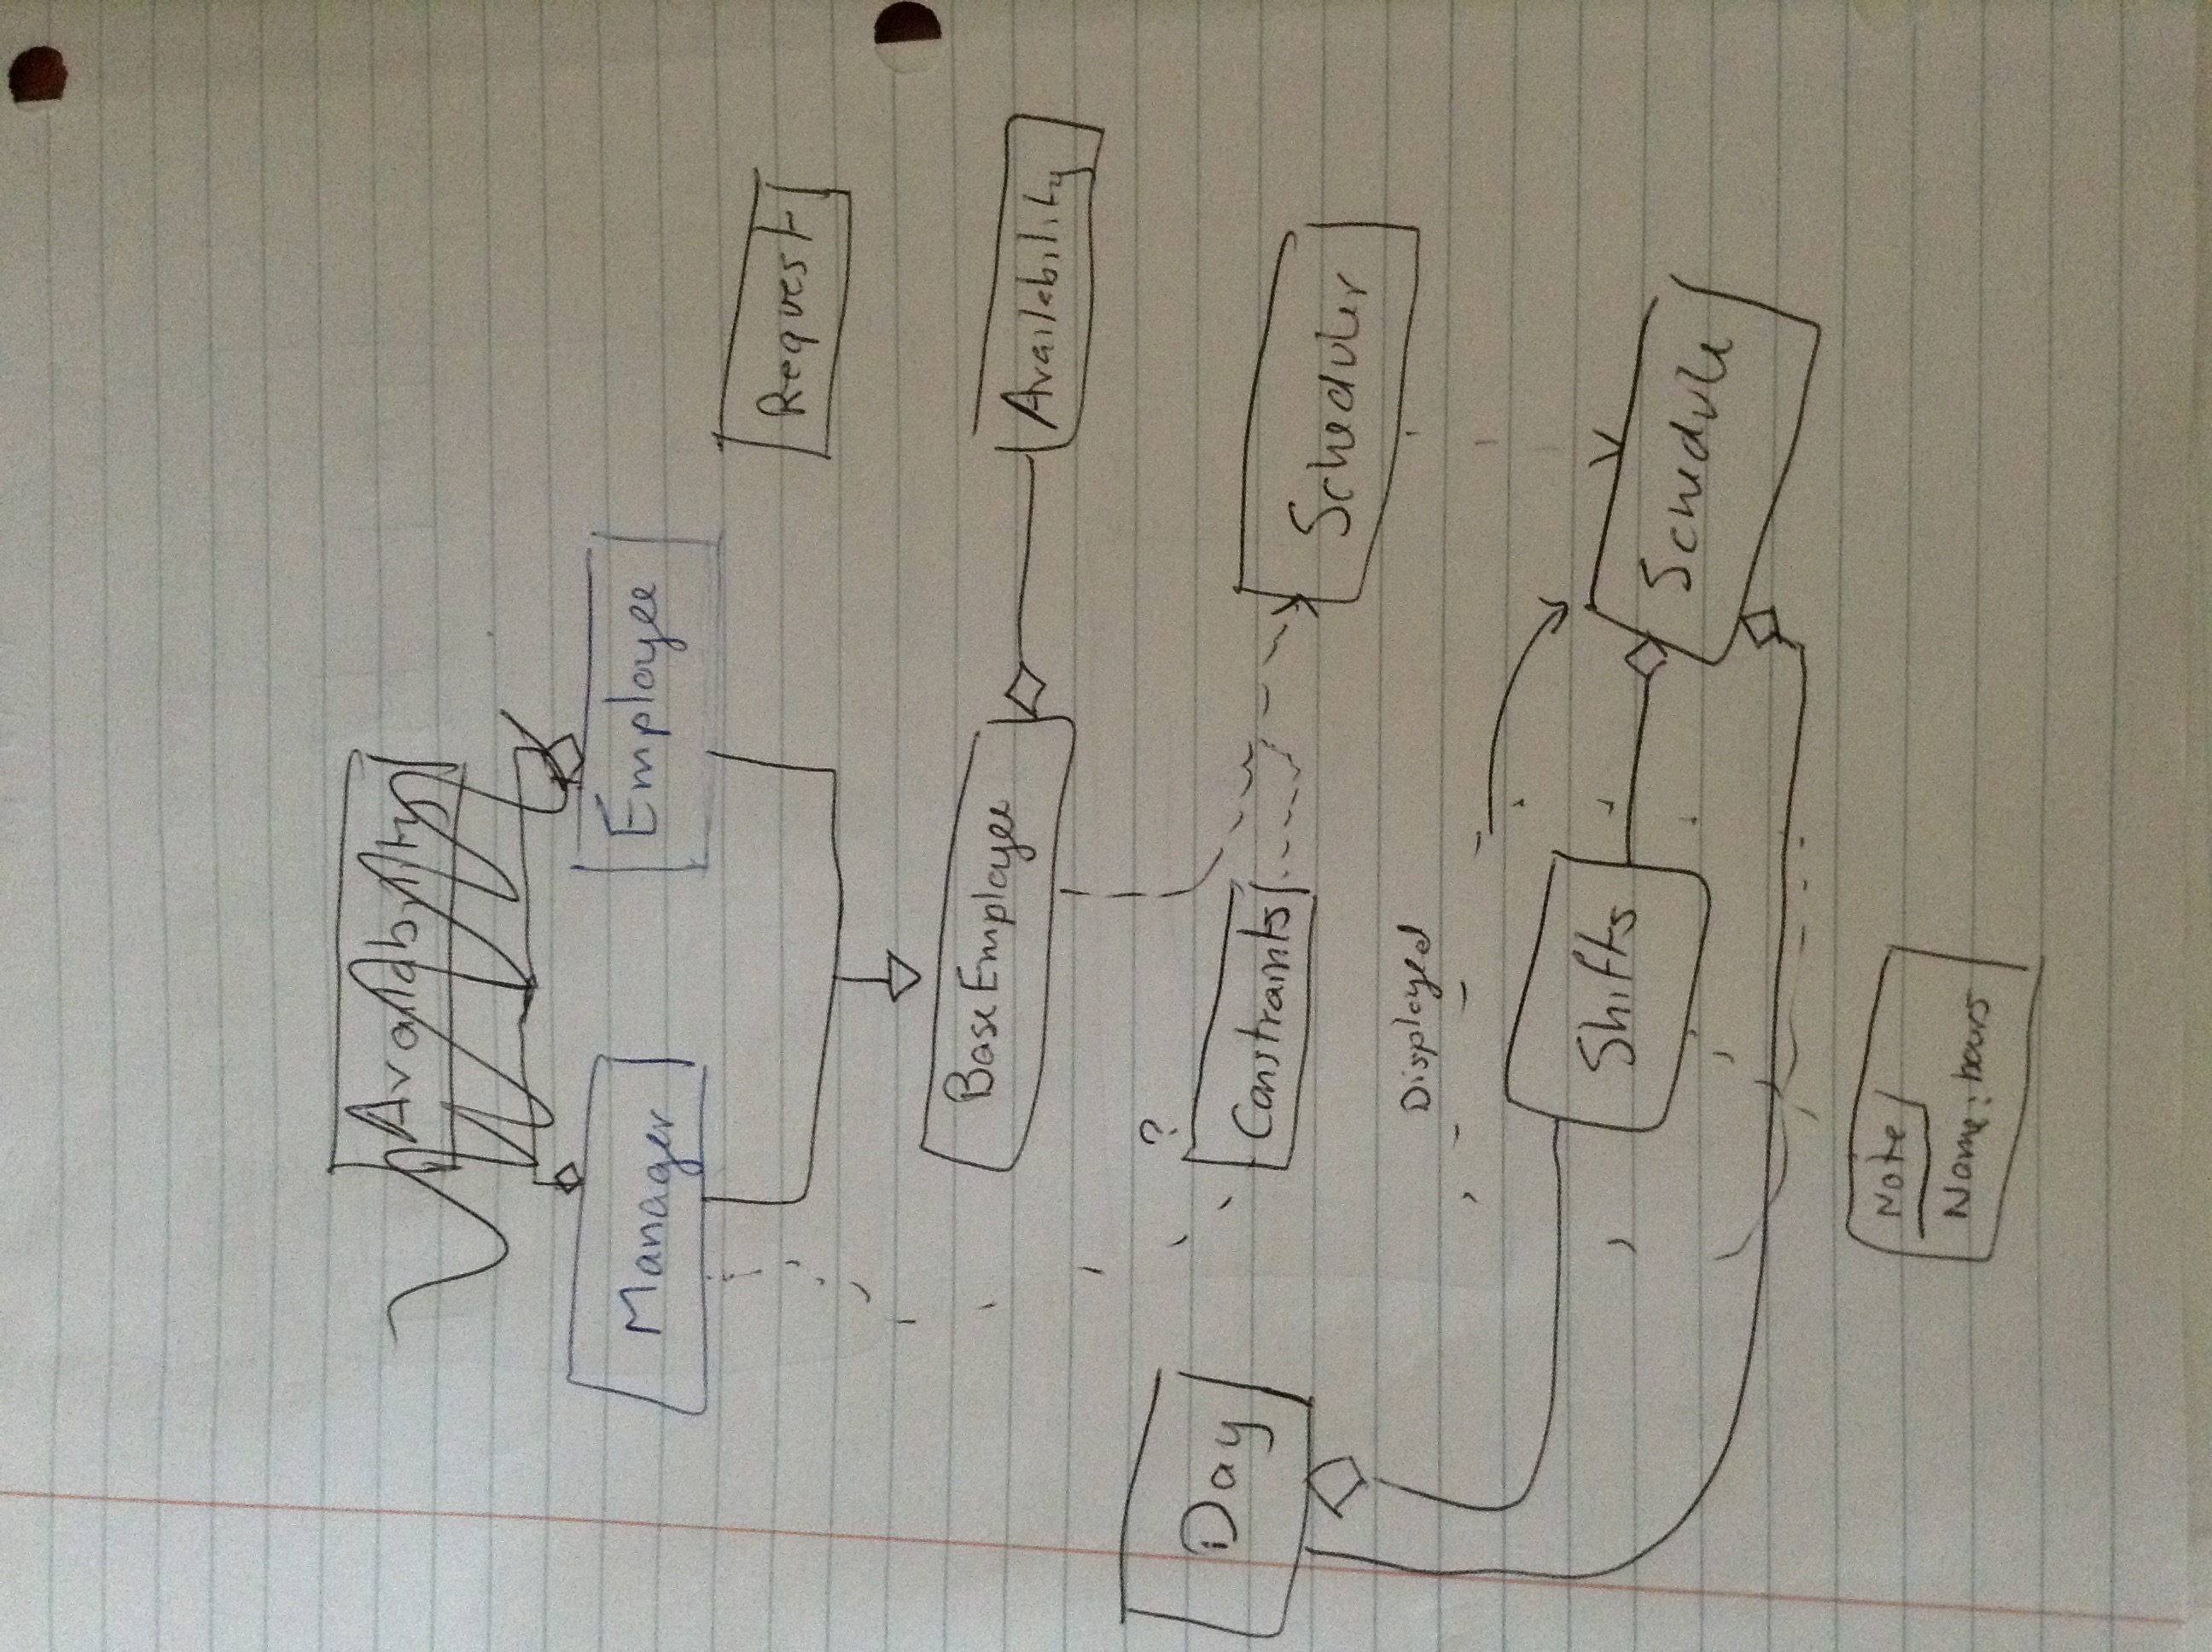 Availability
Manager
Employee
Request
BaseEmployee
Availability
Day
?
Constraints
Scheduler
Displayed
Shifts
Schedule
Note
Name: hours